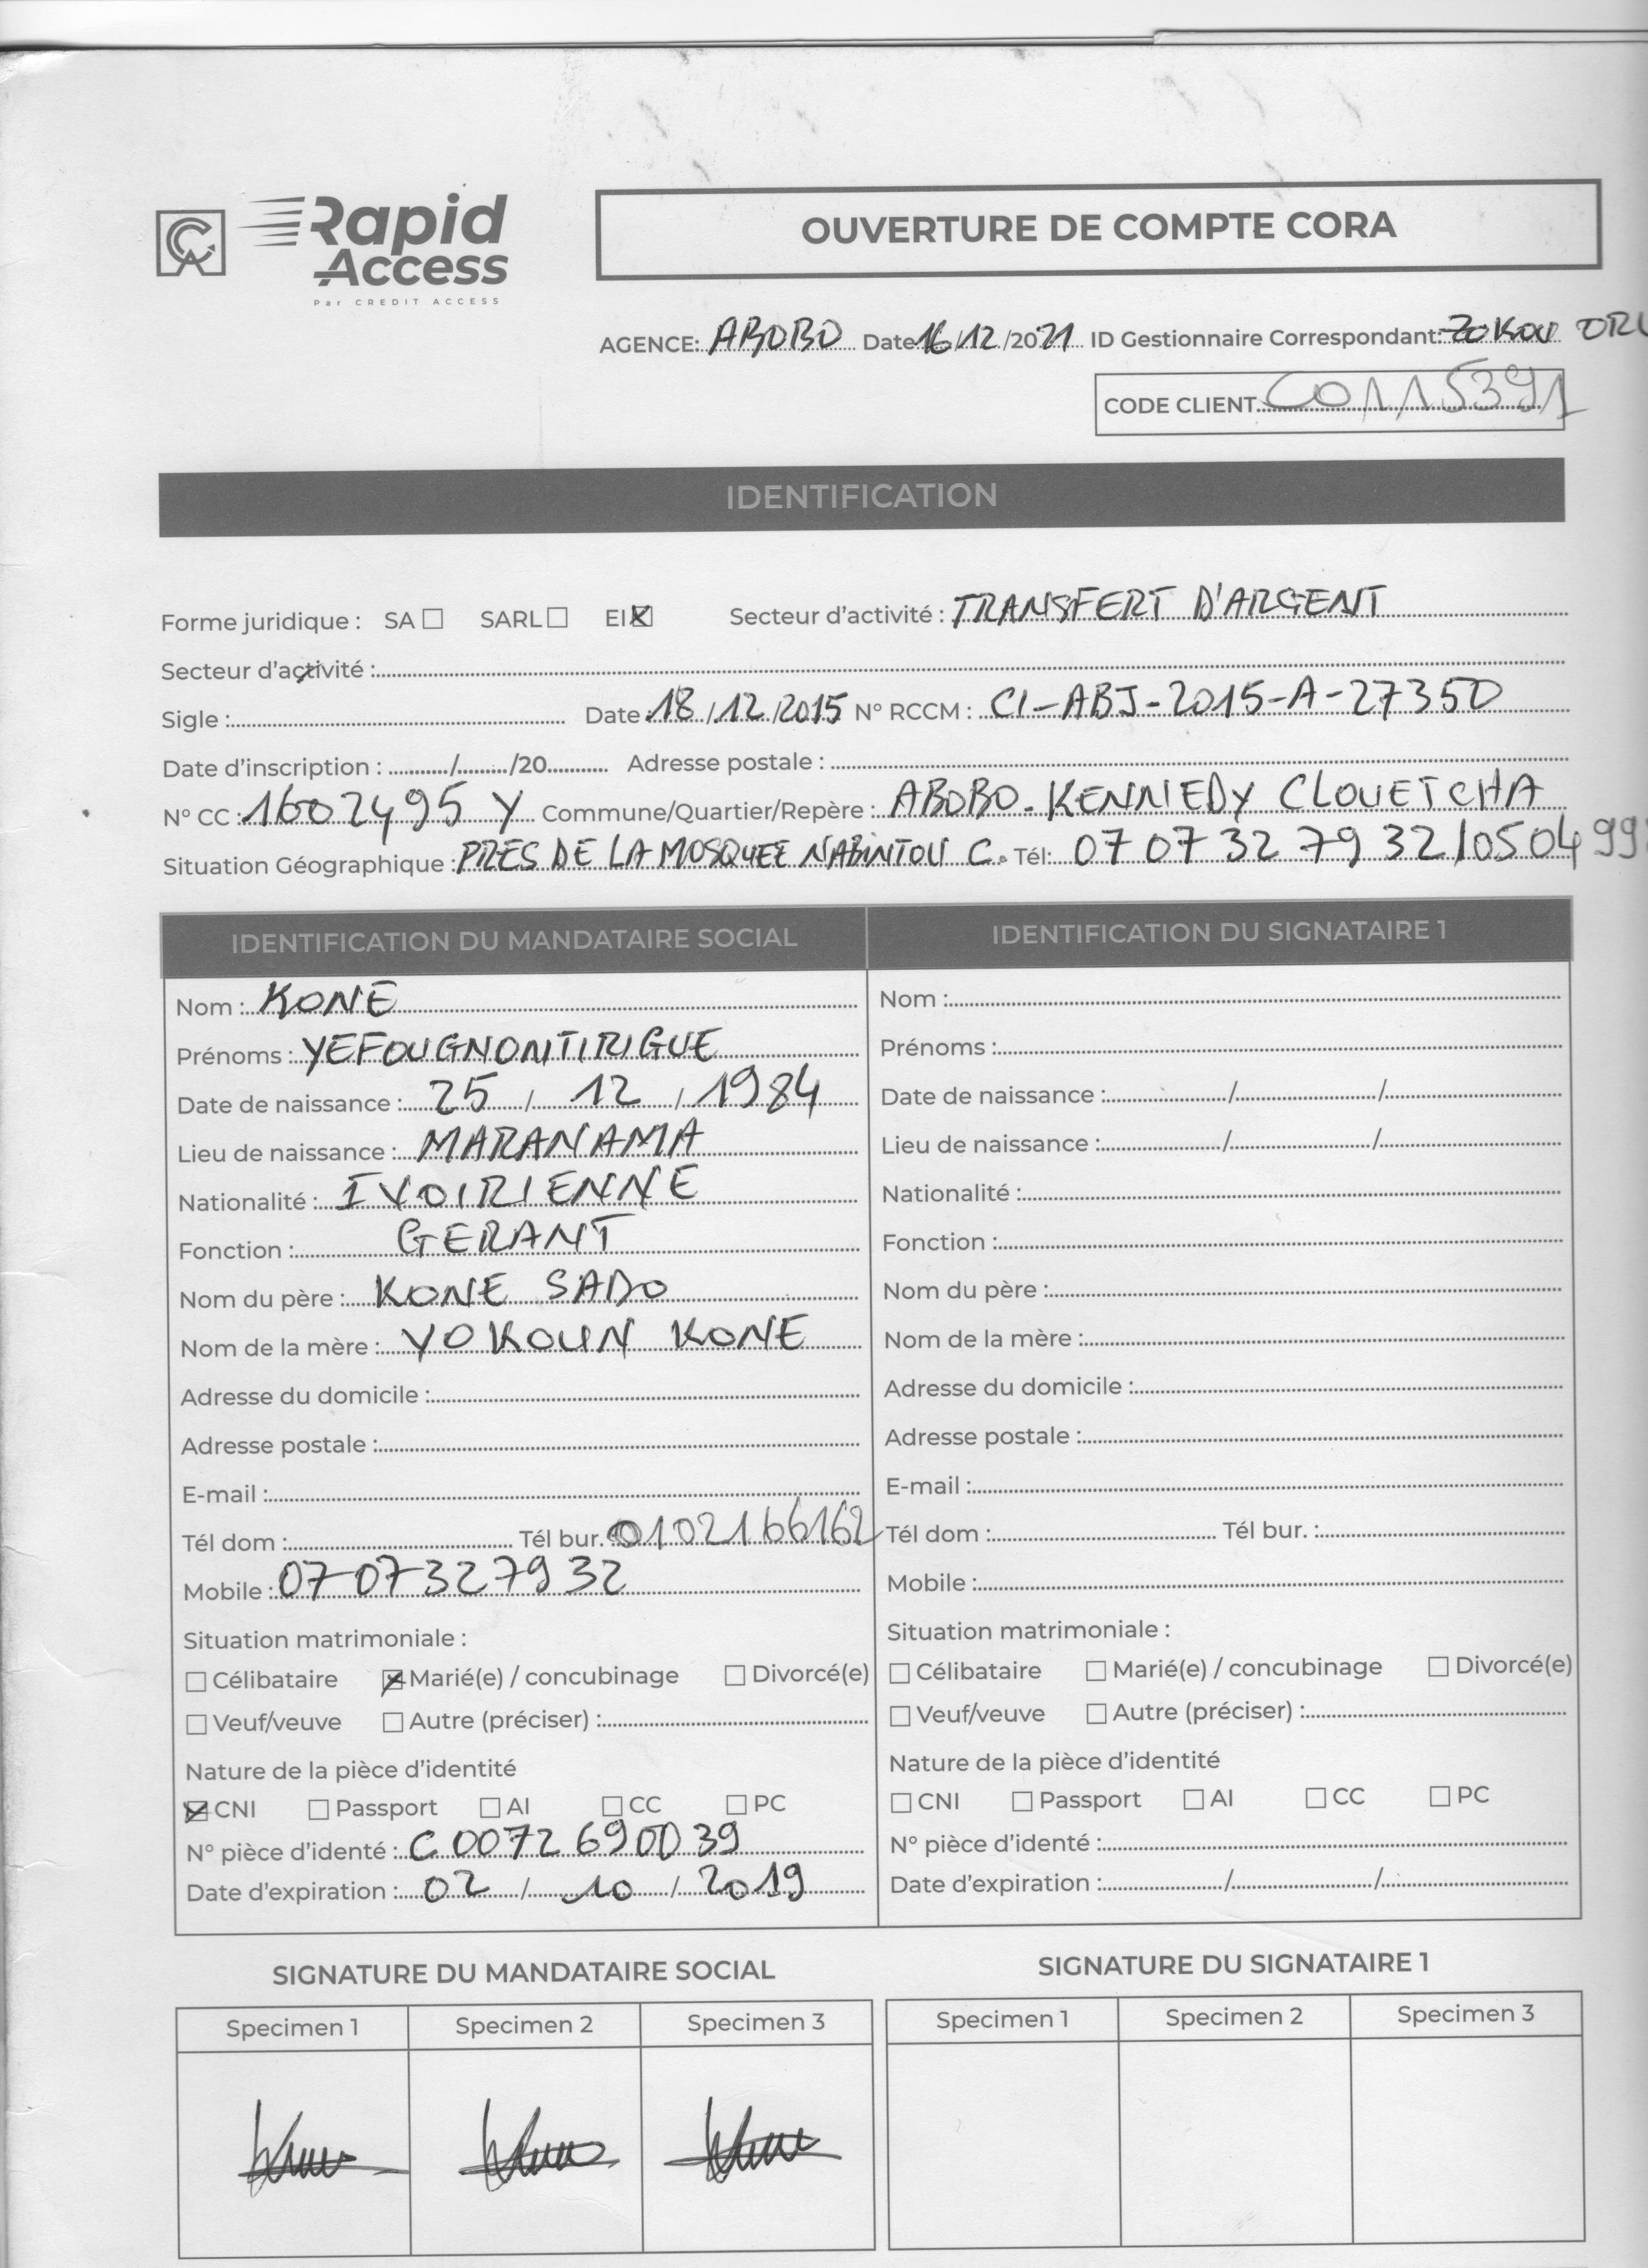 Rapid
Access
Par CREDIT ACCESS
OUVERTURE DE COMPTE CORA
AGENCE: ABOBO Date 16/12/2021 ID Gestionnaire Correspondant: ZOKOU
CODE CLIENT C0115391
IDENTIFICATION
Forme juridique : SA ☐ SARL ☐ EI ☒ Secteur d'activité : TRANSFERT D'ARGENT
Secteur d'activité :
Sigle : Date 18/12/2015 N° RCCM : CI-ABJ-2015-A-27350
Date d'inscription : / /20 Adresse postale :
N° CC : 1602495 Y Commune/Quartier/Repère : ABOBO-KENNEDY CLOUETCHA
Situation Géographique : PRES DE LA MOSQUEE NABINTOU C. Tél: 07 07 32 79 32/0504 99
IDENTIFICATION DU MANDATAIRE SOCIAL
Nom : KONE
Prénoms : YEFOUGNONTIRIGUE
Date de naissance : 25 / 12 / 1984
Lieu de naissance : MARANAMA
Nationalité : IVOIRIENNE
Fonction : GERANT
Nom du père : KONE SADO
Nom de la mère : YOKOUN KONE
Adresse du domicile :
Adresse postale :
E-mail :
Tél dom : Tél bur. : 0102166162
Mobile : 07 07 32 79 32
Situation matrimoniale :
☐ Célibataire ☒ Marié(e) / concubinage ☐ Divorcé(e)
☐ Veuf/veuve ☐ Autre (préciser) :
Nature de la pièce d'identité
☒ CNI ☐ Passport ☐ AI ☐ CC ☐ PC
N° pièce d'identé : C 0072 6900 39
Date d'expiration : 02 / 10 / 2019
IDENTIFICATION DU SIGNATAIRE 1
Nom :
Prénoms :
Date de naissance : / /
Lieu de naissance : / /
Nationalité :
Fonction :
Nom du père :
Nom de la mère :
Adresse du domicile :
Adresse postale :
E-mail :
Tél dom : Tél bur. :
Mobile :
Situation matrimoniale :
☐ Célibataire ☐ Marié(e) / concubinage ☐ Divorcé(e)
☐ Veuf/veuve ☐ Autre (préciser) :
Nature de la pièce d'identité
☐ CNI ☐ Passport ☐ AI ☐ CC ☐ PC
N° pièce d'identé :
Date d'expiration : / /
SIGNATURE DU MANDATAIRE SOCIAL
Specimen 1 Specimen 2 Specimen 3
SIGNATURE DU SIGNATAIRE 1
Specimen 1 Specimen 2 Specimen 3